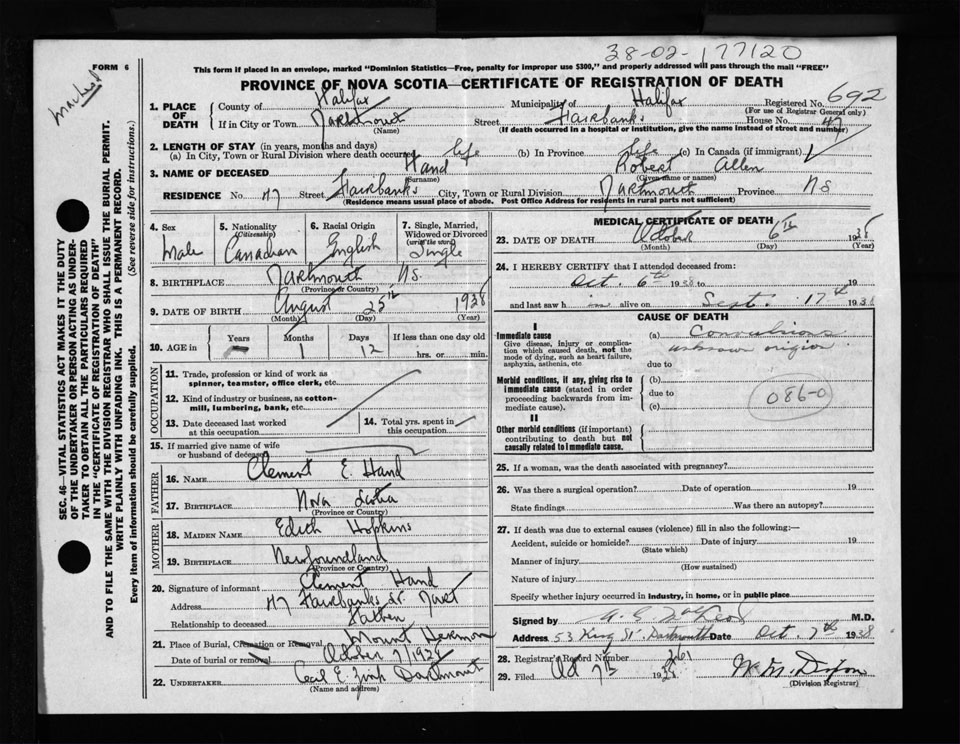 38-02-177120
FORM 6
This form if placed in an envelope, marked "Dominion Statistics—Free, penalty for improper use $300," and properly addressed will pass through the mail "FREE"
PROVINCE OF NOVA SCOTIA—CERTIFICATE OF REGISTRATION OF DEATH
1. PLACE OF DEATH County of Halifax Municipality of Halifax Registered No. 692
(For use of Registrar General only)
If in City or Town Dartmouth Street Fairbanks House No. 47
(Name) (If death occurred in a hospital or institution, give the name instead of street and number)
2. LENGTH OF STAY (in years, months and days)
(a) In City, Town or Rural Division where death occurred life (b) In Province Life (c) In Canada (if immigrant)
3. NAME OF DECEASED Hand Robert Allen
(Surname) (Given name or names)
RESIDENCE No. 47 Street Fairbanks City, Town or Rural Division Dartmouth Province N S
(Residence means usual place of abode. Post Office Address for residents in rural parts not sufficient)
SEC. 46—VITAL STATISTICS ACT MAKES IT THE DUTY
OF THE UNDERTAKER OR PERSON ACTING AS UNDER-
TAKER TO OBTAIN ALL THE PARTICULARS REQUIRED
IN THE "CERTIFICATE OF REGISTRATION OF DEATH"
AND TO FILE THE SAME WITH THE DIVISION REGISTRAR WHO SHALL ISSUE THE BURIAL PERMIT.
WRITE PLAINLY WITH UNFADING INK. THIS IS A PERMANENT RECORD.
Every item of information should be carefully supplied. (See reverse side for instructions.)
4. Sex 5. Nationality (Citizenship) 6. Racial Origin 7. Single, Married, Widowed or Divorced (write the word)
Male Canadian English Single
8. BIRTHPLACE Dartmouth N.S.
(Province or Country)
9. DATE OF BIRTH August 25th 1938
(Month) (Day) (Year)
10. AGE in Years Months Days If less than one day old
1 12 hrs. or min.
OCCUPATION
11. Trade, profession or kind of work as
spinner, teamster, office clerk, etc.
12. Kind of industry or business, as cotton-
mill, lumbering, bank, etc.
13. Date deceased last worked at this occupation 14. Total yrs. spent in this occupation
15. If married give name of wife
or husband of deceased
FATHER
16. NAME Clement E. Hand
17. BIRTHPLACE Nova Scotia
(Province or Country)
MOTHER
18. MAIDEN NAME Edith Hopkins
19. BIRTHPLACE Newfoundland
(Province or Country)
20. Signature of informant Clement Hand
Address 47 Fairbanks St. Dart
Relationship to deceased Father
21. Place of Burial, Cremation or Removal Mount Hermon
Date of burial or removal October 7/1938
22. UNDERTAKER Cecil E. Zink Dartmouth
(Name and address)
MEDICAL CERTIFICATE OF DEATH
23. DATE OF DEATH October 6th 1938
(Month) (Day) (Year)
24. I HEREBY CERTIFY that I attended deceased from:
Oct. 6th 1938 to 19
and last saw h im alive on Sept. 17th 1938
CAUSE OF DEATH
I
Immediate cause (a) Convulsions
Give disease, injury or complica- unknown origin
tion which caused death, not the
mode of dying, such as heart failure, due to
asphyxia, asthenia, etc
Morbid conditions, if any, giving rise to (b)
immediate cause (stated in order due to
proceeding backwards from im- (c)
mediate cause).
086-0
II
Other morbid conditions (if important)
contributing to death but not
causally related to immediate cause.
25. If a woman, was the death associated with pregnancy?
26. Was there a surgical operation? Date of operation 19
State findings Was there an autopsy?
27. If death was due to external causes (violence) fill in also the following:—
Accident, suicide or homicide? Date of injury 19
(State which)
Manner of injury
(How sustained)
Nature of injury
Specify whether injury occurred in industry, in home, or in public place
Signed by M.D.
Address 53 King St. Dartmouth Date Oct. 7th 1938
28. Registrar's Record Number 261
29. Filed Oct 7th 1938 W. M. Dixon
(Division Registrar)